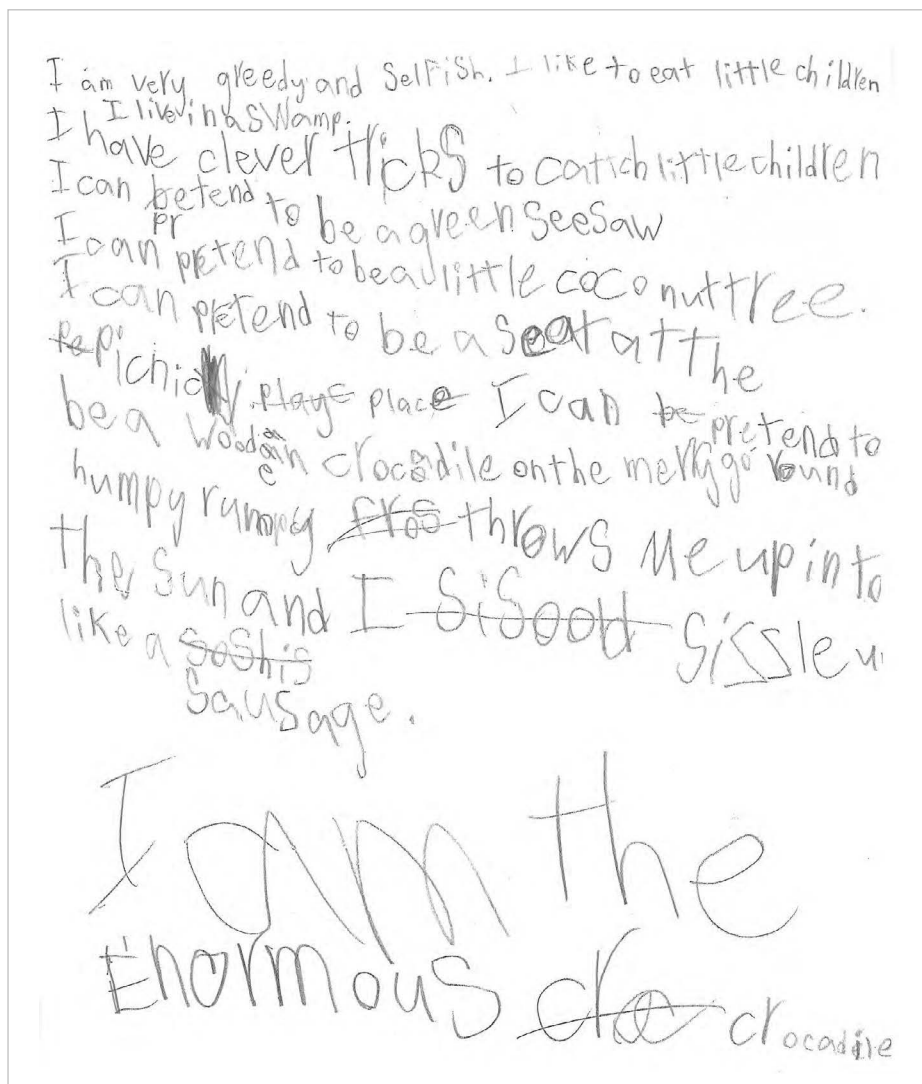 I am very greedy and Selfish. I like to eat little children
I live in a Swamp.
I have clever tricks to catich little children
I can pretend to be a green SeeSaw
I can pretend to be a little coconut tree.
I can pretend to be a Seat at the
pichic place I can pretend to
be a wooden crocodile on the merry go round
humpy rumpy throws Me up into
the Sun and I Sissle u
like a Soshis
Sausage.
I am the
Enormous cro crocadile